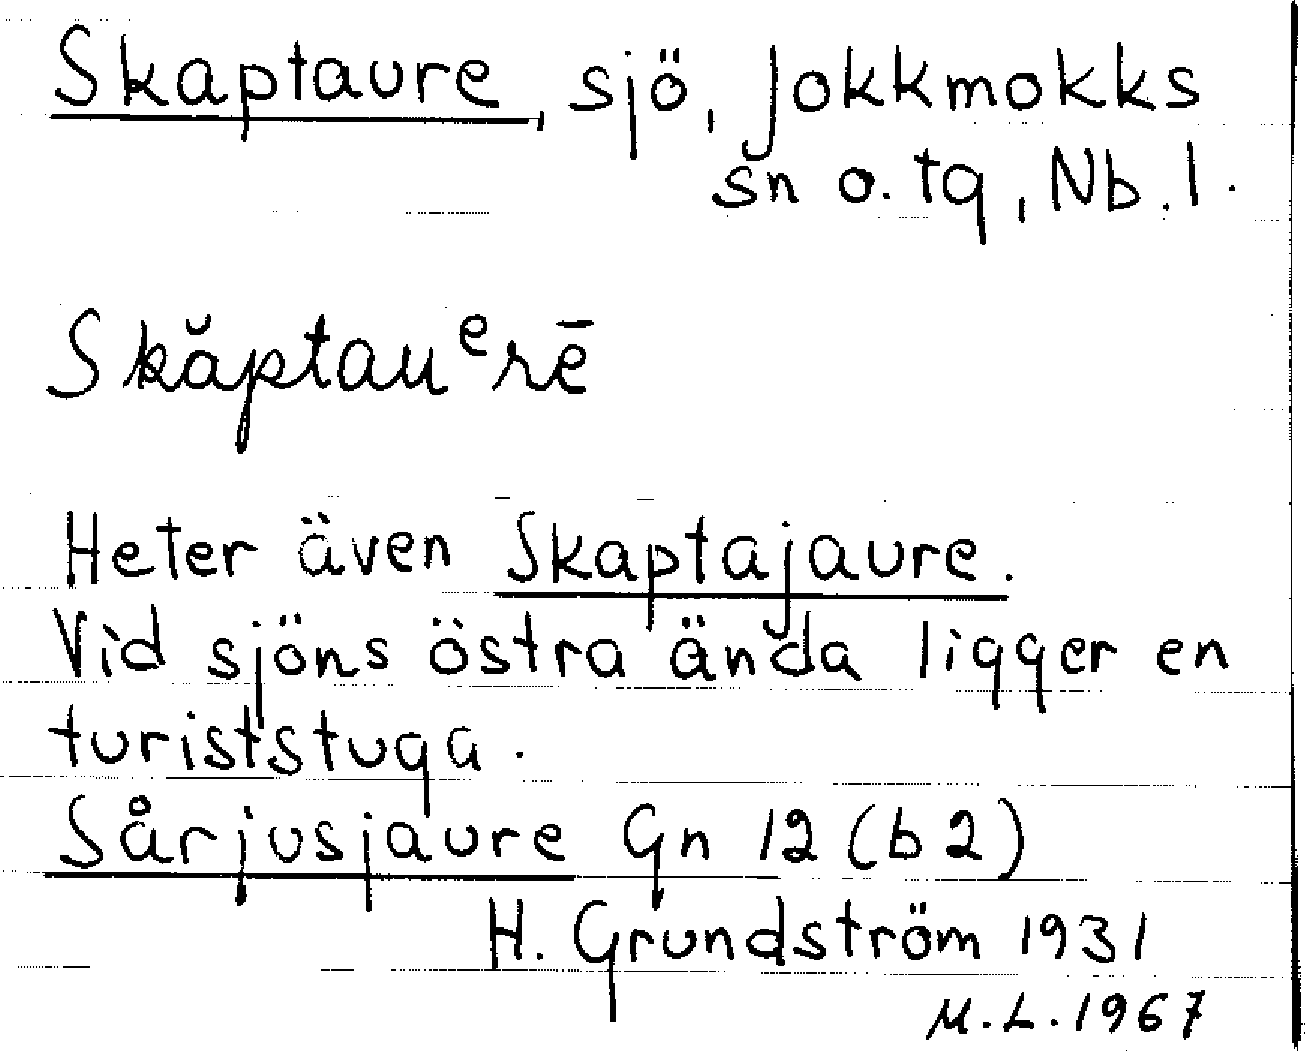 Skaptaure, sjö, Jokkmokks
sn o. tg, Nb. l.
Skăptauᵉrē
Heter även Skaptajaure.
Vid sjöns östra ända ligger en
turiststuga.
Sårjusjaure Gn 12 (b2)
H. Grundström 1931
M.L. 1967